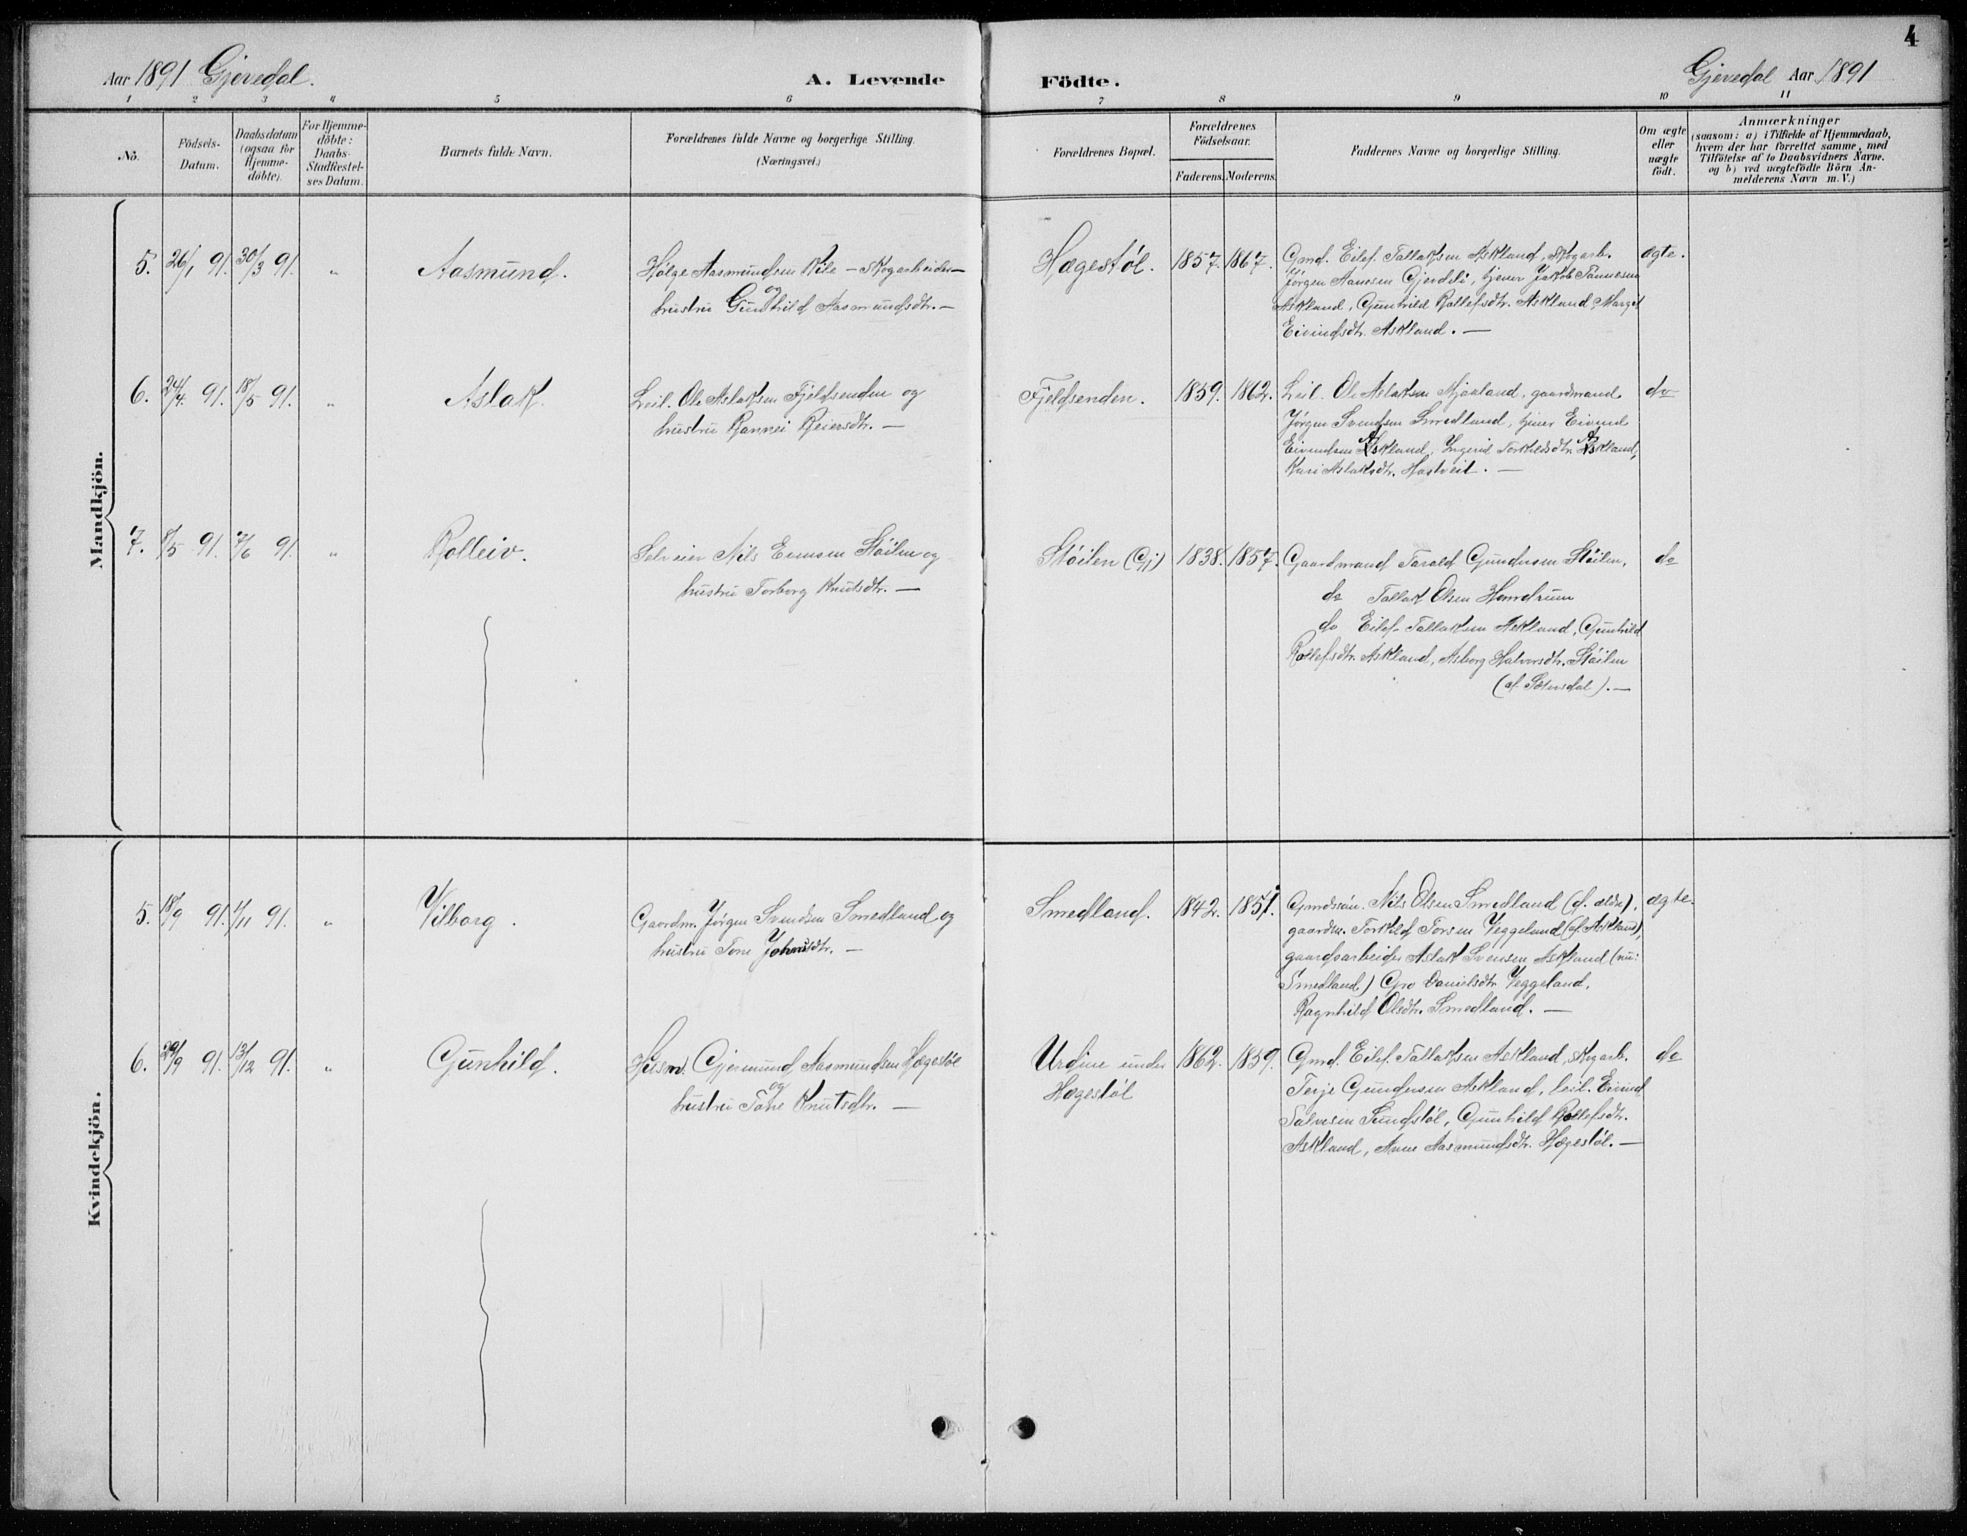 4
Aar 1891 Gjøvedal.
A. Levende Födte.
Gjøvedal Aar 1891
1 2 3 4 5 6 7 8 9 10 11
No.
Födsels-Datum.
Daabsdatum (ogsaa for Hjemme-döbte).
For Hjemme-döbte: Daabs-Stadfæstel-ses Datum.
Barnets fulde Navn.
Forældrenes fulde Navne og borgerlige Stilling. (Næringsvei.)
Forældrenes Bopæl.
Forældrenes Födselsaar.
Faderens. Moderens.
Faddernes Navne og borgerlige Stilling.
Om ægte eller uægte födt.
Anmærkninger
(saasom: a) i Tilfælde af Hjemmedaab,
hvem der har forrettet samme, med
Tilföielse af to Daabsvidners Navne.
og b) ved uægtefödte Börn An-
melderens Navn m. V.)
Mandkjön.
5. 26/1 91. 30/3 91. " Aasmund.
Helge Aasmundsen Kile – Skogarbeider –
og
hustru Gunhild Aasmundsdtr. –
Hægestøl. 1857. 1867.
Gmd. Eilef Tallaksen Askland, skogarb.
Jørgen Aanesen Gjerdli, tjener Jakob Tønnesen
Askland, Gunhild Rollefsdtr. Askland, Marget
Eivindsdtr. Askland. –
ægte.
6. 24/4 91. 18/5 91. " Aslak.
Leil. Ole Aslaksen Fjeldsenden og
hustru Rannei Reiersdtr. –
Fjeldsenden. 1859. 1862.
Leil. Ole Aslaksen Mjaaland, gaardmand
Jørgen Svendsen Smedland, tjener Eivind
Eivindsen Askland, Ingerid Torkildsdtr. Askland,
Kari Aslaksdtr. Hastveit. –
do
7. 8/5 91. 7/6 91. " Rolleiv.
Selveier Nils Evensen Støilen og
hustru Torborg Knutsdtr. –
Støilen (Gj) 1838. 1857.
Gaardmand Tarald Gundersen Støilen,
do Tallak Olsen Homdrum
do Eilef Tallaksen Askland, Gunhild
Rollefsdtr. Askland, Asborg Halvorsdtr. Støilen
(af Sætersdal). –
do
Kvindekjön.
5. 18/9 91. 1/11 91. " Vilborg.
Gaardm. Jørgen Svendsen Smedland og
hustru Tone Johnsdtr. –
Smedland. 1842. 1851.
Gmdssøn. Nils Olsen Smedland (d. ældre),
gaardm. Torkild Torsen Veggeland (af Askland),
gaardsarbeider Aslak Svensen Askland (nu:
Smedland) Gro Danielsdtr. Veggeland,
Ragnhild Olsdtr. Smedland. –
ægte.
6. 29/9 91. 13/12 91. " Gunhild.
Husm. Gjermund Aasmundsen Hægestøl
og
hustru Tone Knutsdtr. –
Urdine under
Hægestøl
1862. 1859.
Gmd. Eilef Tallaksen Askland, skogarb.
Terje Gundersen Askland, leil. Eivind
Salvesen Sundstøl, Gunhild Rollefsdtr.
Askland, Anne Aasmundsdtr. Hægestøl. –
do